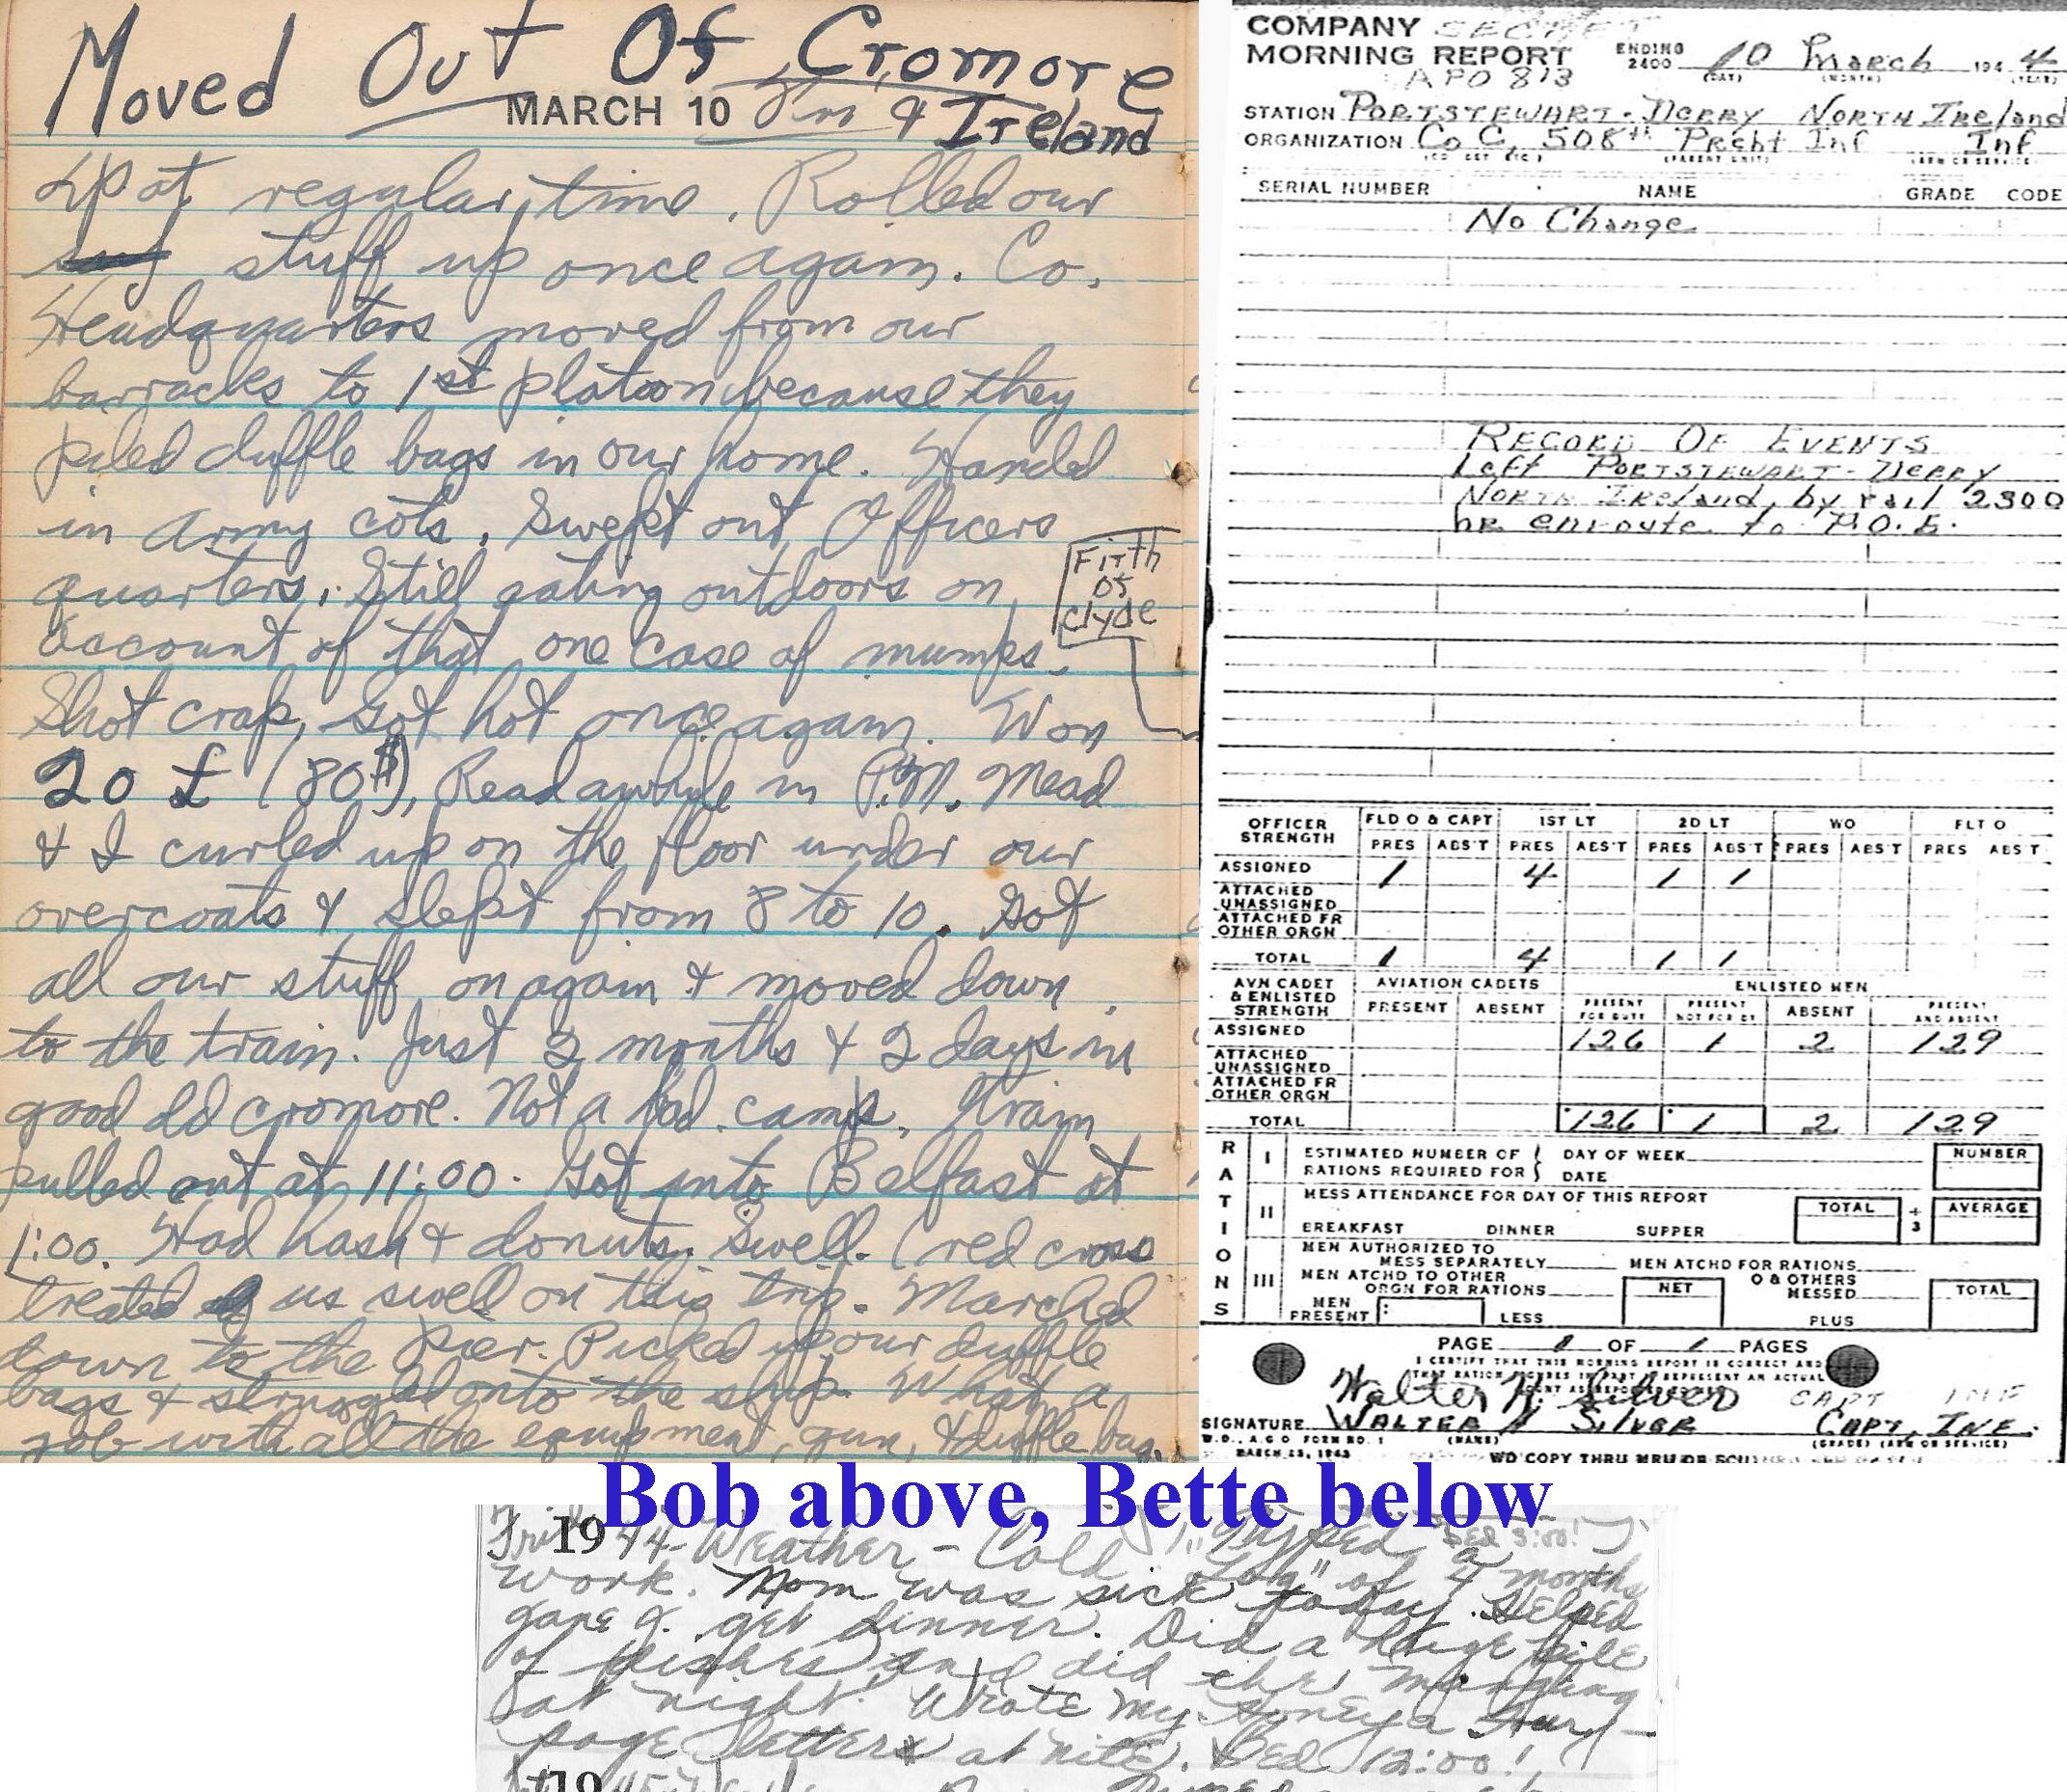 Moved Out Of Cromore
MARCH 10 Ireland
Up at regular time. Rolled our
stuff up once again. Co.
Headquarters moved from our
barracks to 1st platoon because they
piled duffle bags in our home. Handed
in army cots. Swept out Officers
quarters. Still eating outdoors on
account of that one case of mumps.
Firth
of
Clyde
Shot crap, got hot once again. Won
20 £ (80$), Read awhile in P.M. Mead
& I curled up on the floor under our
overcoats & slept from 8 to 10. Got
all our stuff on again & moved down
to the train. Just 2 months & 2 days in
good old cromore. Not a bad camp. Train
pulled out at 11:00. Got into Belfast at
1:00. Had hash & donuts. Swell. (red cross
treated us swell on this trip. Marched
down to the pier. Picked up our duffle
bags & struggled onto the ship. What a
job with all the equipment, gun, & duffle bag.
COMPANY SECRET
MORNING REPORT ENDING 2400 10 March 1944
(DAY) (MONTH) (YEAR)
APO 813
STATION PORTSTEWART-DERRY NORTH IReland
ORGANIZATION Co C, 508th Prcht Inf Inf
SERIAL NUMBER NAME GRADE CODE
No Change
RECORD OF EVENTS
Left PORTSTEWART-DERRY
NORTH IReland, by rail 2300
hr enroute to P.O.E.
OFFICER STRENGTH FLD O & CAPT 1ST LT 2D LT WO FLT O
PRES ABS'T PRES ABS'T PRES ABS'T PRES ABS'T PRES ABS'T
ASSIGNED 1 4 1 1
ATTACHED UNASSIGNED
ATTACHED FR OTHER ORGN
TOTAL 1 4 1 1
AVN CADET & ENLISTED STRENGTH AVIATION CADETS ENLISTED MEN
PRESENT ABSENT PRESENT FOR DUTY PRESENT NOT FOR DY ABSENT PRESENT AND ABSENT
ASSIGNED 126 1 2 129
ATTACHED UNASSIGNED
ATTACHED FR OTHER ORGN
TOTAL 126 1 2 129
RATIONS
I ESTIMATED NUMBER OF RATIONS REQUIRED FOR DAY OF WEEK DATE NUMBER
II MESS ATTENDANCE FOR DAY OF THIS REPORT TOTAL ÷ 3 AVERAGE
BREAKFAST DINNER SUPPER
III MEN AUTHORIZED TO MESS SEPARATELY MEN ATCHD FOR RATIONS
MEN ATCHD TO OTHER ORGN FOR RATIONS NET O & OTHERS MESSED TOTAL
MEN PRESENT LESS PLUS
PAGE 1 OF 1 PAGES
I CERTIFY THAT THIS MORNING REPORT IS CORRECT AND
Walter H. Silver CAPT INF
SIGNATURE WALTER H SILVER CAPT, INF.
W.D., A.G.O. FORM NO. 1 (NAME) (GRADE) (ARM OR SERVICE)
MARCH 25, 1943 WD COPY THRU MRU OR SCU
Bob above, Bette below
Fri. 1944 - Weather - Cold. Typed
"Log" of 4 months
work. Mom was sick today. Helped
Jane J. get dinner. Did a huge pile
of dishes and did the mangling
at night. Wrote my
page letter at nite. Bed 12:00!
19